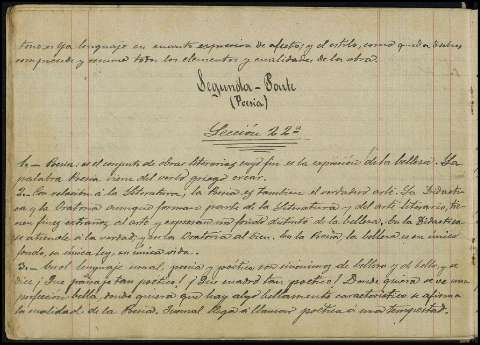 tono es ya lenguaje en cuanto expresion de afectos; y el estilo, como queda dicho,
comprende y resume todos los elementos y cualidades de la obra.
Segunda-Parte
(Poesia)
Lección 22ª
1.- Poesia. es el conjunto de obras literarias cuyo fin es la expresion de la belleza. La
palabra Poesia viene del verbo griego crear.
2.- Con relación á la Literatura, la Poesia es tambien el verdadero arte. La Didactica
y la Oratoria aunque forman parte de la Literatura y del arte literario, tie-
nen fines extraños al arte y expresan un fondo distinto de la belleza. En la Didactica
se atiende á la verdad y en la Oratoria al bien. En la Poesia, la belleza es su único
fondo, su única ley, su única vida.
3.- En el lenguaje usual, poesia y poético son sinónimos de belleza y de bello, y se
dice ¡Que paisaje tan poetico! ¡Que cuadro tan poetico! Donde quiera se ve una
perfeccion bella, donde quiera que hay algo bellamente caracteristico se afirma
la cualidad de la Poesia. Juvenal llega á llamar poética a una tempestad.